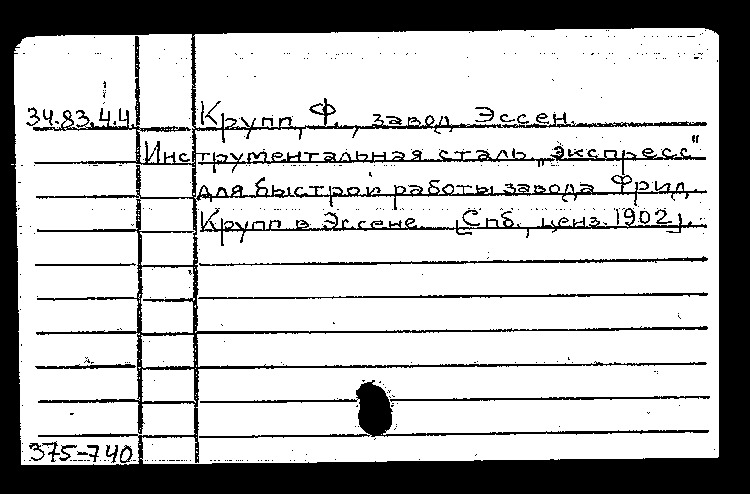 34.83.4.4. Крупп, Ф., завод, Эссен.
Инструментальная сталь „экспресс"
для быстрой работы завода Фрид.
Крупп в Эссене. [Спб., ценз. 1902].
375-740